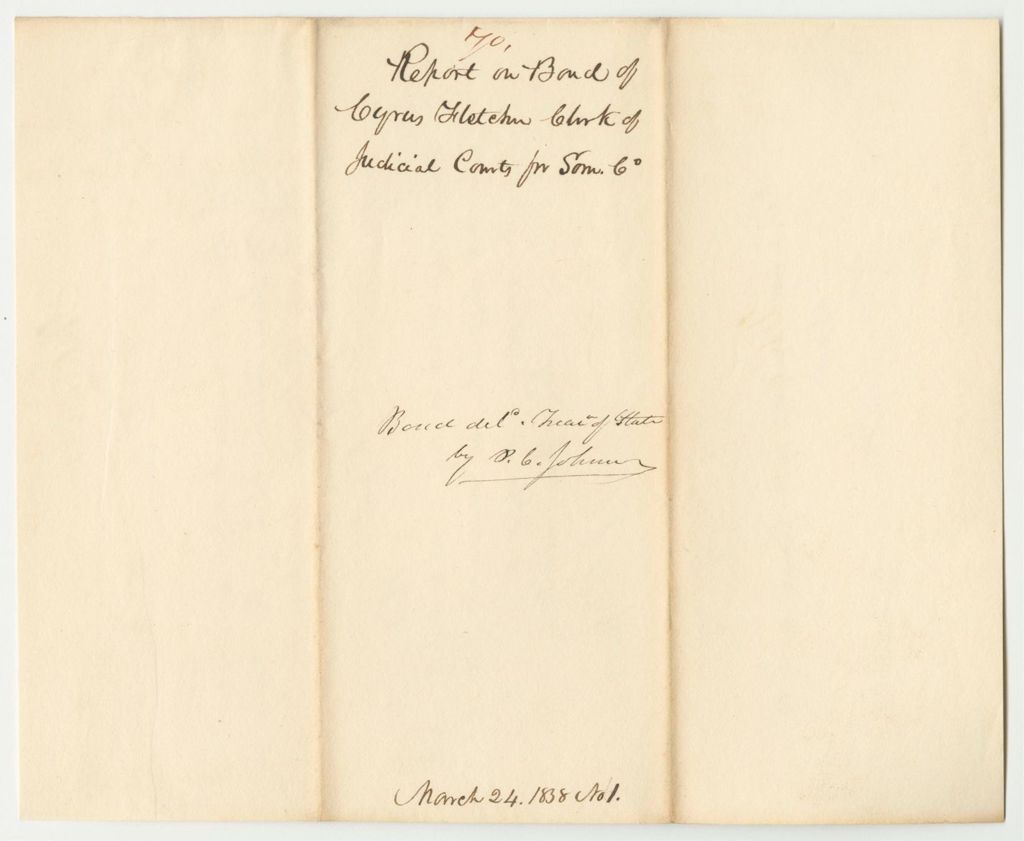 70.
Report on Bond of
Cyrus Fletcher Clerk of
Judicial Courts for Som. Co
Bond deld. Treas of State
by P. C. Johnson
March 24. 1838 No 1.